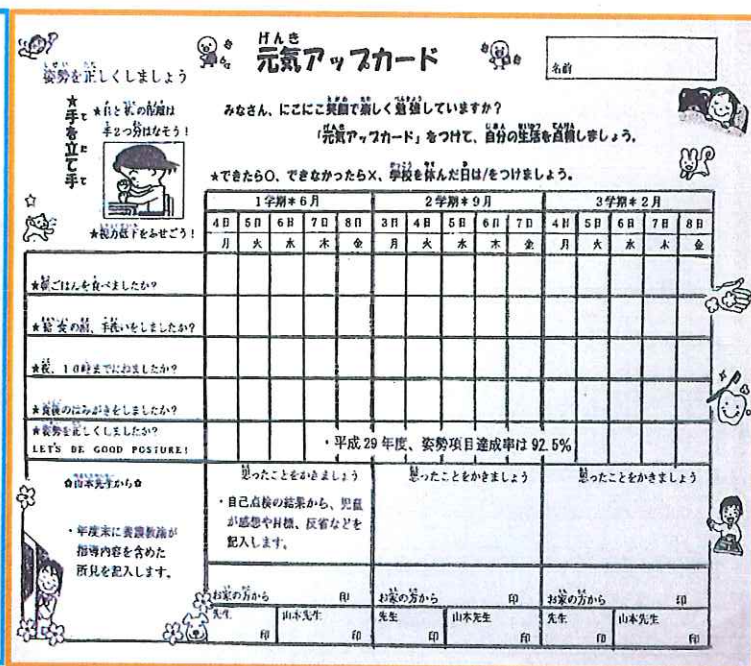 げんき
元気アップカード
名前
姿勢を正しくしましょう
★手を立て手
★目と机の距離は
手2つ分はなそう!
★視力低下をふせごう!
みなさん、にこにこ笑顔で楽しく勉強していますか?
「元気アップカード」をつけて、自分の生活を点検しましょう。
★できたら○、できなかったら×、学校を休んだ日は/をつけましょう。
1学期*6月 2学期*9月 3学期*2月
4日 5日 6日 7日 8日 3日 4日 5日 6日 7日 4日 5日 6日 7日 8日
月 火 水 木 金 月 火 水 木 金 月 火 水 木 金
★朝ごはんを食べましたか?
★給食の前、手洗いをしましたか?
★夜、10時までにねましたか?
★食後のはみがきをしましたか?
★姿勢を正しくしましたか?
LET'S BE GOOD POSTURE!
・平成29年度、姿勢項目達成率は92.5%
✿山本先生から✿
・年度末に養護教諭が
指導内容を含めた
所見を記入します。
思ったことをかきましょう 思ったことをかきましょう 思ったことをかきましょう
・自己点検の結果から、児童
が感想や目標、反省などを
記入します。
お家の方から 印 お家の方から 印 お家の方から 印
先生 印 山本先生 印 先生 印 山本先生 印 先生 印 山本先生 印